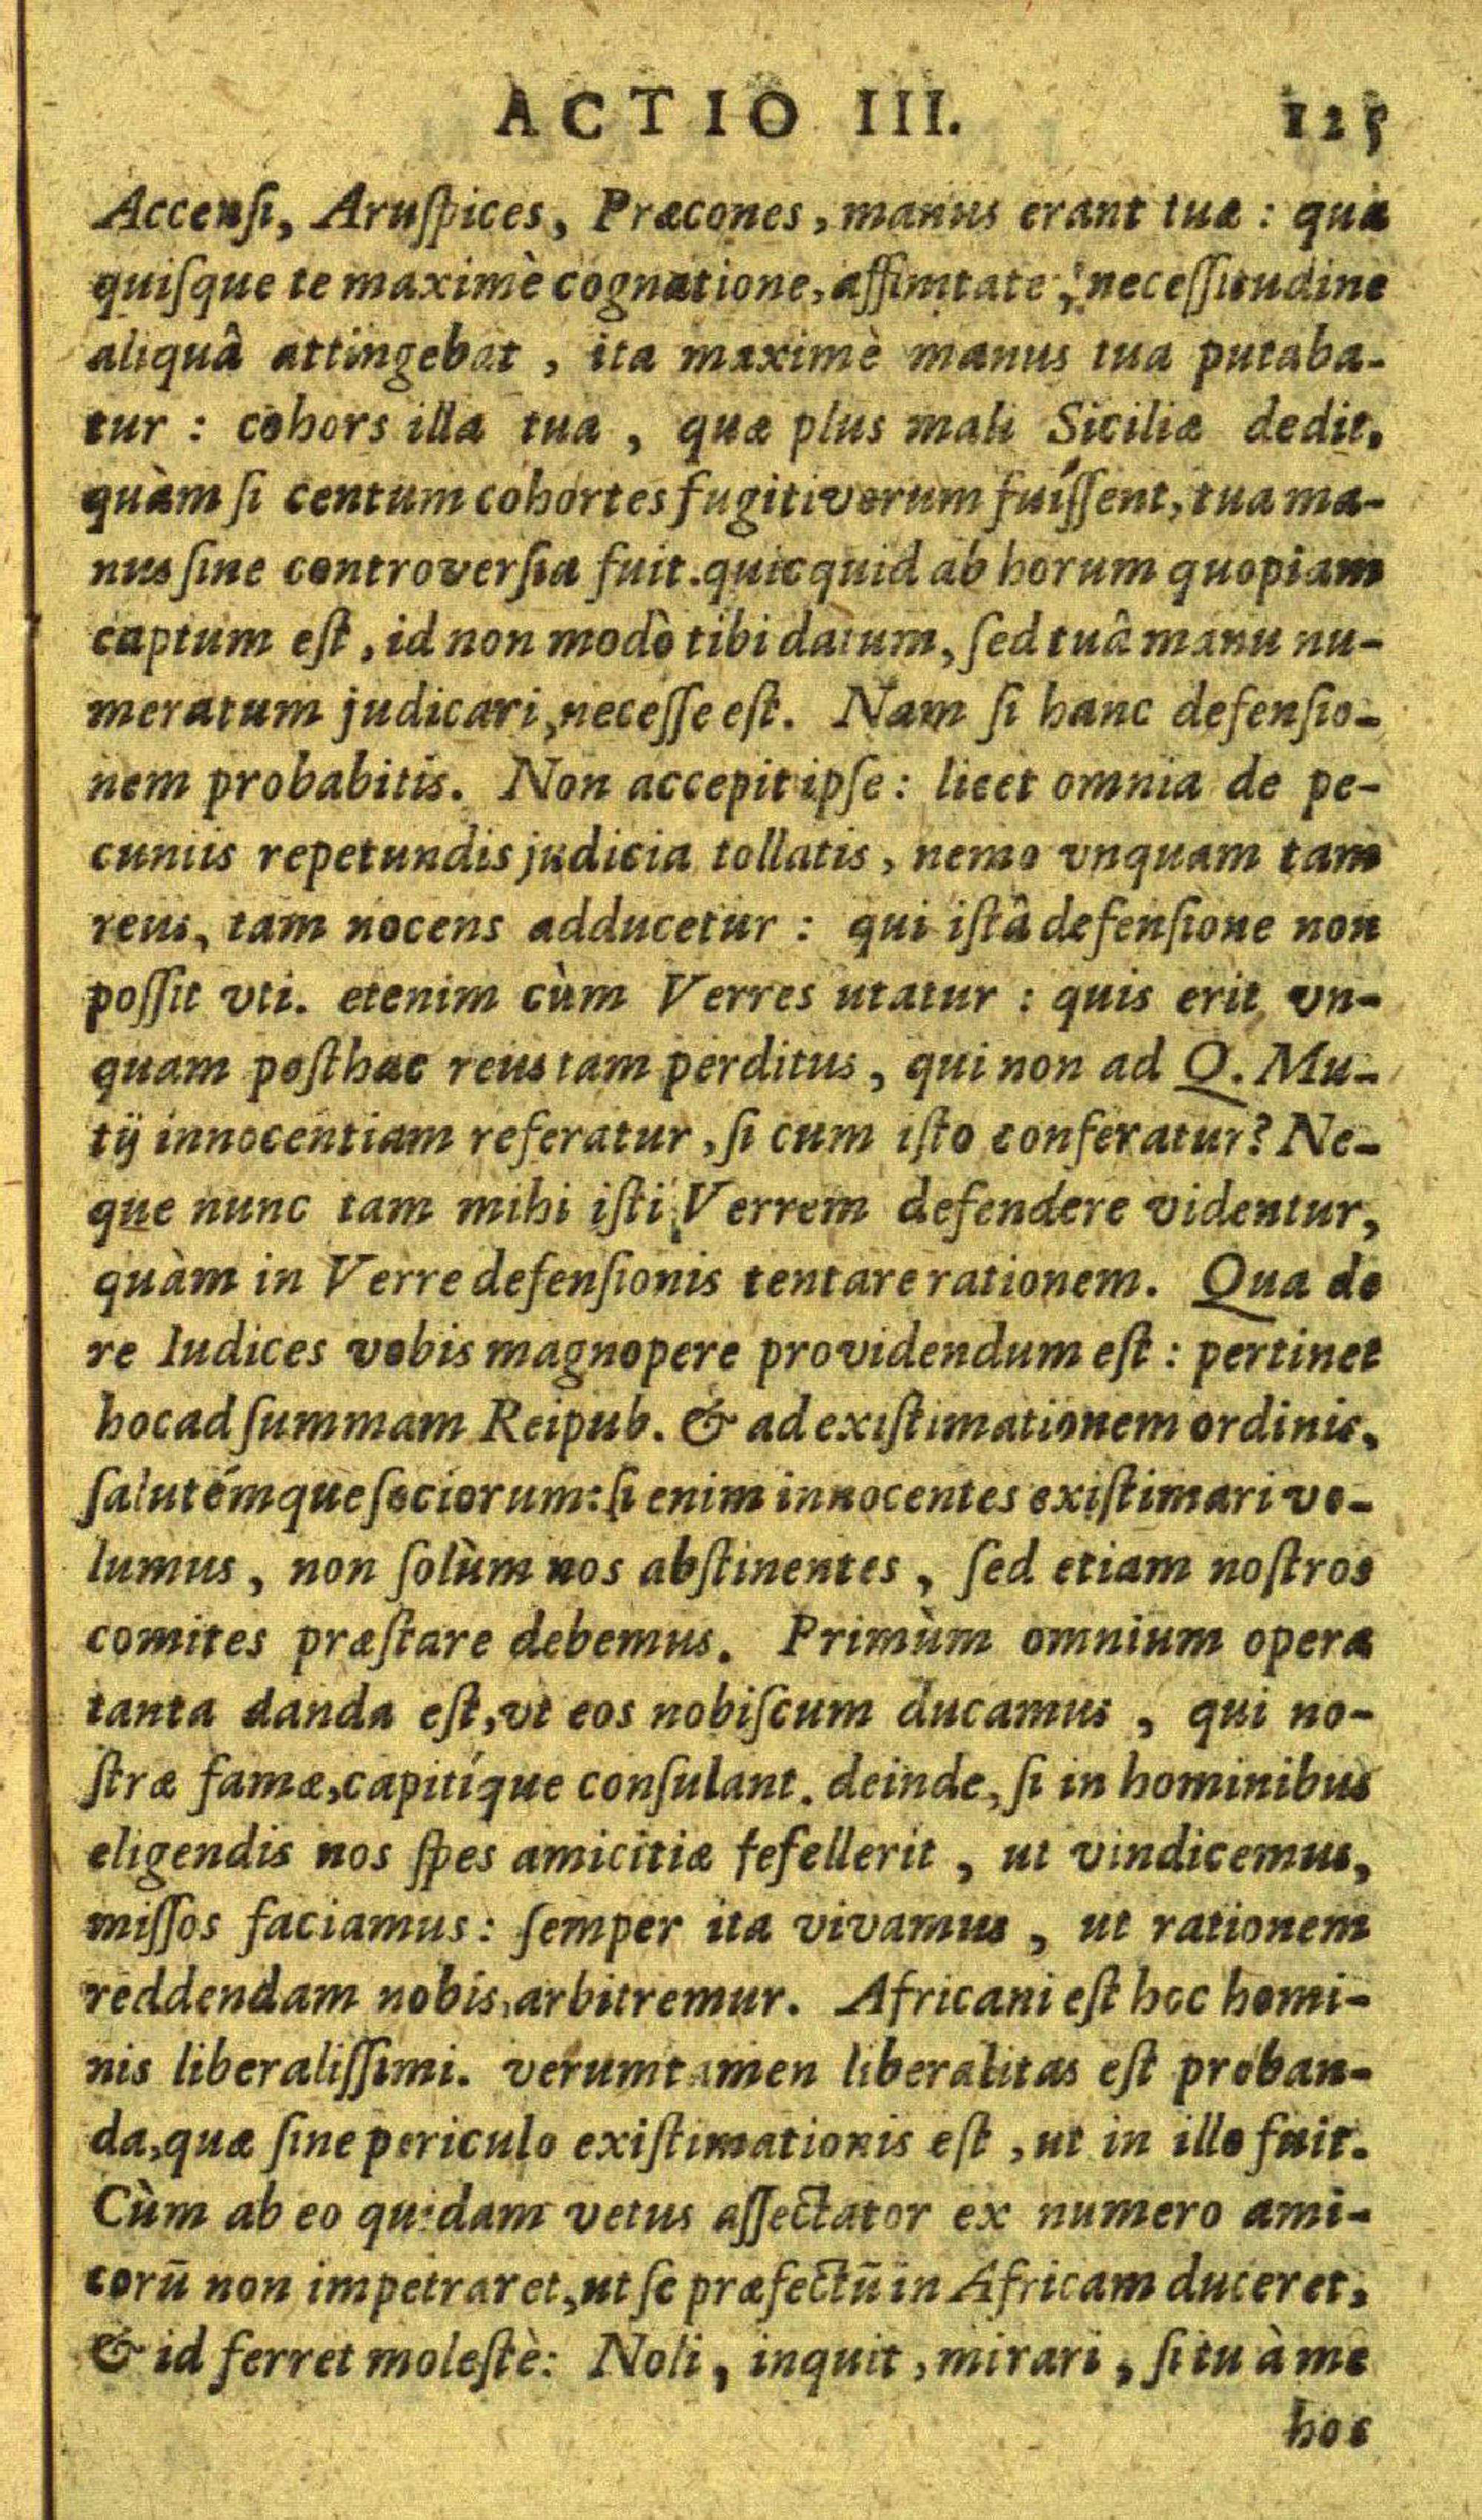 ACTIO III. 125
Accenſi, Aruſpices, Præcones, manus erant tuæ : qua
quiſque te maximè cognatione, affinitate, neceſſitudine
aliquâ attingebat, ita maximè manus tua putaba-
tur : cohors illa tua, quæ plus mali Siciliæ dedit,
quàm ſi centum cohortes fugitivorum fuíſſent, tua ma-
nus ſine controverſia fuit. quicquid ab horum quopiam
captum eſt, id non modò tibi datum, ſed tuâ manu nu-
meratum judicari, neceſſe eſt. Nam ſi hanc defenſio-
nem probabitis. Non accepit ipſe : licet omnia de pe-
cuniis repetundis judicia tollatis, nemo vnquam tam
reus, tam nocens adducetur : qui iſtâ defenſione non
poſſit vti. etenim cùm Verres utatur : quis erit vn-
quam poſthac reus tam perditus, qui non ad Q. Mu-
tij innocentiam referatur, ſi cum iſto conferatur? Ne-
que nunc tam mihi iſti Verrem defendere videntur,
quàm in Verre defenſionis tentare rationem. Qua de
re Iudices vobis magnopere providendum eſt : pertinet
hoc ad ſummam Reipub. & ad exiſtimationem ordinis,
ſalutémque ſociorum: ſi enim innocentes exiſtimari vo-
lumus, non ſolùm nos abſtinentes, ſed etiam noſtros
comites præſtare debemus. Primùm omnium opera
tanta danda eſt, vt eos nobiſcum ducamus, qui no-
ſtræ famæ, capitíque conſulant. deinde, ſi in hominibus
eligendis nos ſpes amicitiæ fefellerit, ut vindicemus,
miſſos faciamus : ſemper ita vivamus, ut rationem
reddendam nobis, arbitremur. Africani eſt hoc homi-
nis liberaliſſimi. verumtamen liberalitas eſt proban-
da, quæ ſine periculo exiſtimationis eſt, ut in illo fuit.
Cùm ab eo quidam vetus aſſectator ex numero ami-
corū non impetraret, ut ſe præfectū in Africam duceret,
& id ferret moleſtè: Noli, inquit, mirari, ſi tu à me
hoc